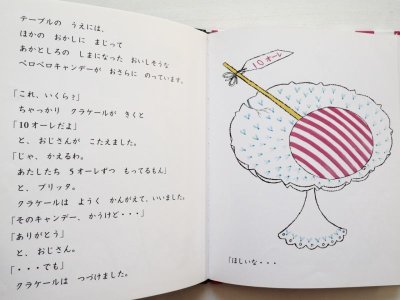 テーブルの うえには、
ほかの おかしに まじって
あかとしろの しまになった おいしそうな
ペロペロキャンデーが おさらに のっています。
「これ、いくら？」
ちゃっかり クラケールが きくと
「10オーレだよ」
と、おじさんが こたえました。
「じゃ、かえるわ。
あたしたち 5オーレずつ もってるもん」
と、ブリッタ。
クラケールは ようく かんがえて、いいました。
「そのキャンデー、かうけど・・・」
「ありがとう」
と、おじさん。
「・・・でも」
クラケールは つづけました。
10オーレ
「ほしいな・・・